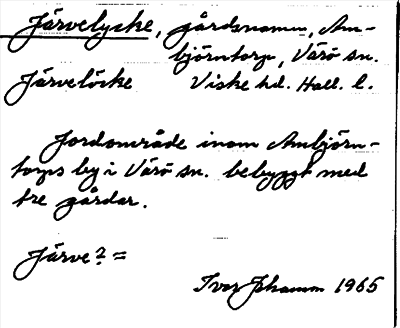 Järvelycke, gårdsnamn, Am-
björntorp, Värö sn.
Järvelöcke Viske hd. Hall. l.
Jordområde inom Ambjörn-
torps by i Värö sn. bebyggt med
tre gårdar.
Järve? =
Ivar Johansson 1965